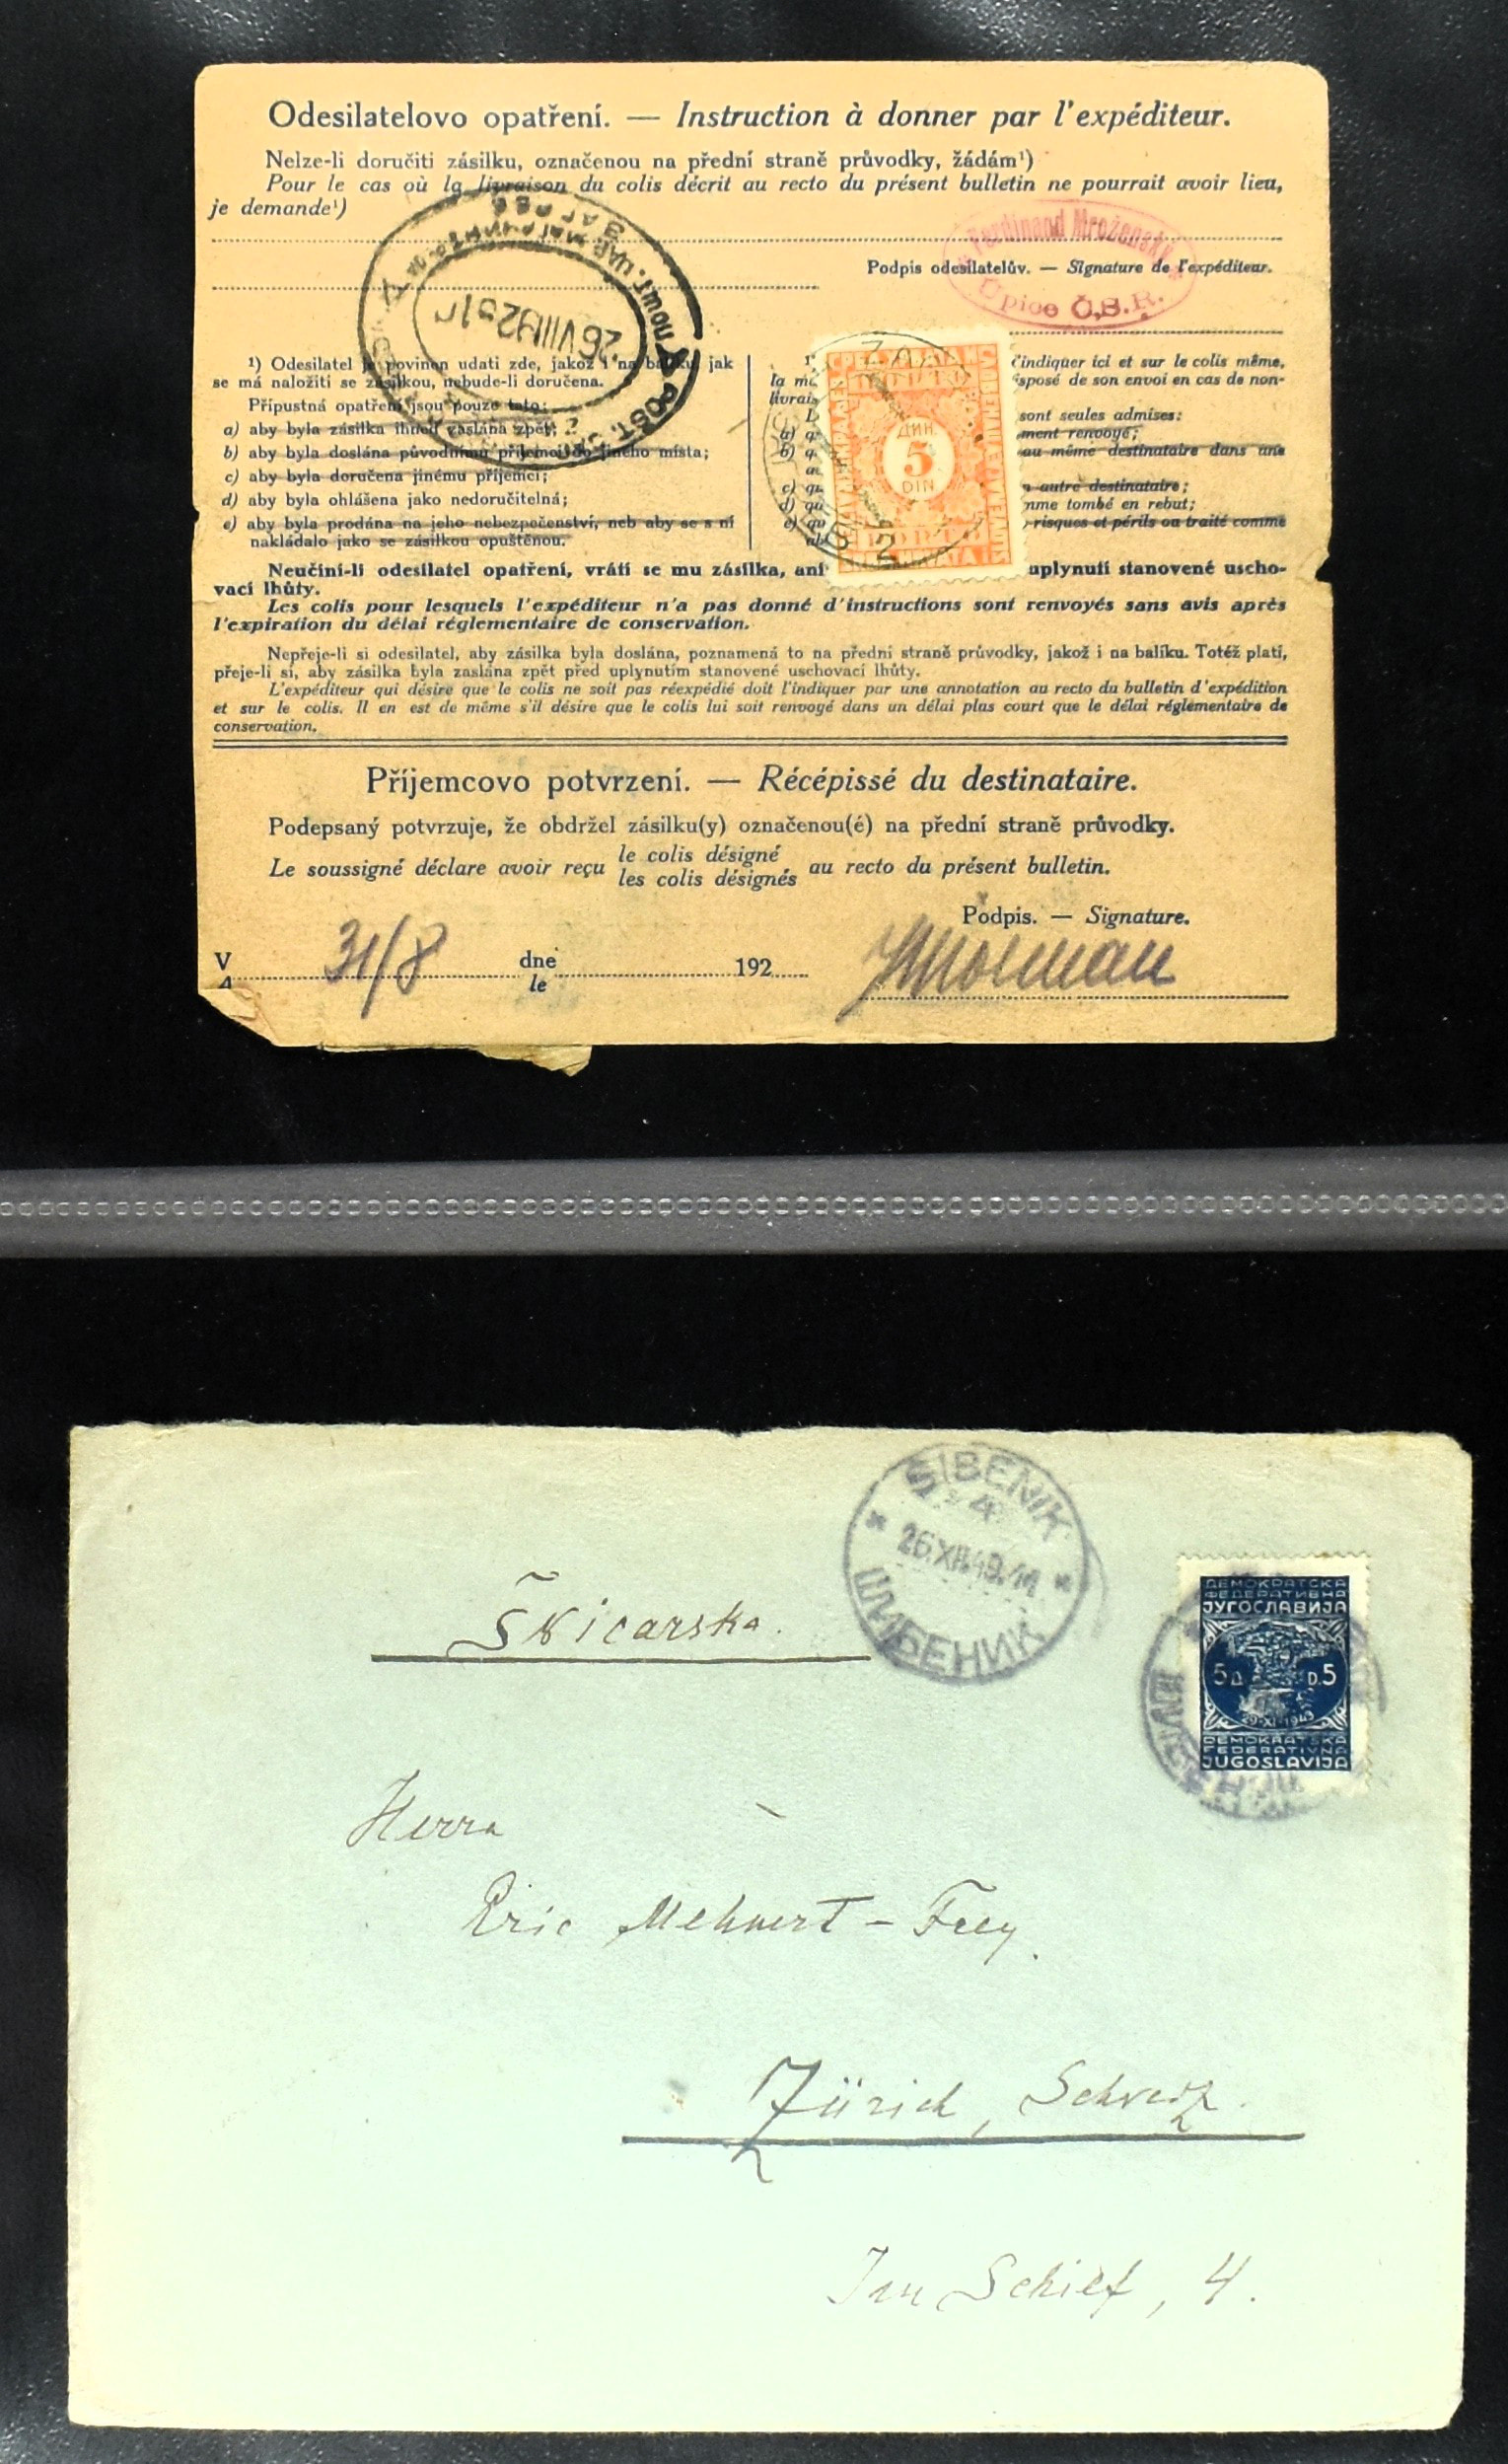 Odesilatelovo opatření. — Instruction à donner par l'expéditeur.
Nelze-li doručiti zásilku, označenou na přední straně průvodky, žádám¹)
Pour le cas où la livraison du colis décrit au recto du présent bulletin ne pourrait avoir lieu,
je demande¹)
Ferdinand Mroženský
Podpis odesilatelův. — Signature de l'expéditeur.
Úpice Č.S.R.
26 VIII 192
¹) Odesilatel je povinen udati zde, jakož i na balíku, jak
se má naložiti se zásilkou, nebude-li doručena.
Přípustná opatření jsou pouze tato:
a) aby byla zásilka ihned zaslána zpět;
b) aby byla doslána původnímu příjemci do jiného místa;
c) aby byla doručena jinému příjemci;
d) aby byla ohlášena jako nedoručitelná;
e) aby byla prodána na jeho nebezpečenství, neb aby se s ní
nakládalo jako se zásilkou opuštěnou.
indiquer ici et sur le colis même,
la
sposé de son envoi en cas de non-
livrais
sont seules admises:
a)
ment renvoyé;
b)
au même destinataire dans une
c)
autre destinataire;
d)
mme tombé en rebut;
e)
risques et périls ou traité comme
ДИН
5
DIN
2
Neučiní-li odesilatel opatření, vrátí se mu zásilka, ani
uplynutí stanovené uscho-
vací lhůty.
Les colis pour lesquels l'expéditeur n'a pas donné d'instructions sont renvoyés sans avis après
l'expiration du délai réglementaire de conservation.
Nepřeje-li si odesilatel, aby zásilka byla doslána, poznamená to na přední straně průvodky, jakož i na balíku. Totéž platí,
přeje-li si, aby zásilka byla zaslána zpět před uplynutím stanovené uschovací lhůty.
L'expéditeur qui désire que le colis ne soit pas réexpédié doit l'indiquer par une annotation au recto du bulletin d'expédition
et sur le colis. Il en est de même s'il désire que le colis lui soit renvoyé dans un délai plus court que le délai réglementaire de
conservation.
Příjemcovo potvrzení. — Récépissé du destinataire.
Podepsaný potvrzuje, že obdržel zásilku(y) označenou(é) na přední straně průvodky.
Le soussigné déclare avoir reçu le colis désigné au recto du présent bulletin.
les colis désignés
Podpis. — Signature.
V 31/8 dne 192
le
ŠIBENIK
26.XII.49.11
ШИБЕНИК
ДЕМОКРАТСКА
ФЕДЕРАТИВНА
ЈУГОСЛАВИЈА
5 Д. D. 5
29·XI·1943
DEMOKRATSKA
FEDERATIVNA
JUGOSLAVIJA
Švicarska.
Herrn
Eric Mehnert-Frey.
Zürich, Schweiz.
Im Schilf, 4.